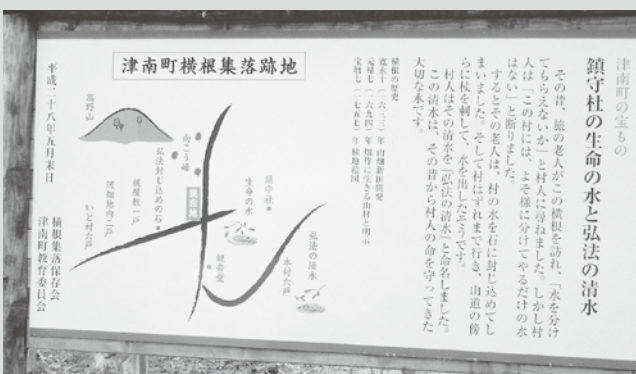 津南町の宝もの
鎮守社の生命の水と弘法の清水
その昔、旅の老人がこの横根を訪れ、「水を分け
てもらえないか」と村人に尋ねました。しかし村
人は「この村には、よそ様に分けてやるだけの水
はない」と断りました。
するとその老人は、村の水を石に封じ込めてし
まいました。そして村はずれまで行き、山道の傍
らに杖を刺して、水を出したそうです。
村人はその清水を『弘法の清水』と命名しました。
この清水は、その昔から村人の命を守ってきた
大切な水です。
横根の歴史
寛永十(一六三三)年 山畑新田開発
元禄七(一六九四)年 畑作に生きる山村と明示
宝暦七(一七五七)年 検地絵図
津南町横根集落跡地
高野山
向こう峰
弘法封じ込めの石
現在地
鎮守社
生命の水
弘法の清水
木村六戸
観音堂
梶屋敷一戸
沢畑地向二戸
いど村六戸
平成二十八年五月末日
横根集落保存会
津南町教育委員会